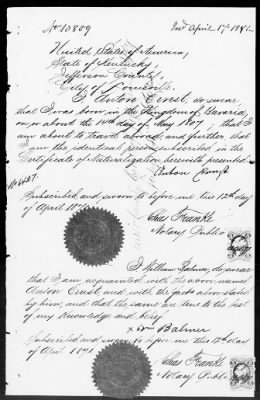 No 10809
April 17th
United States of America,
State of Kentucky,
Jefferson County,
City of Louisville.
I, Anton Ernst, do swear,
that I was born in the Kingdom of Bavaria,
on or about the day of May 1807, that I
am about to travel abroad, and further, that
I am the identical person described in the
Certificate of Naturalization herewith presented.
Anton Ernst
Subscribed and sworn to before me this 12th day
of April
Chas Frankle
Notary Public
I, William Balmer, do swear
that I am acquainted with the above named
Anton Ernst, and with the facts above stated
by him, and that the same are true to the best
of my knowledge and belief
Wm Balmer
Subscribed and sworn to before me this 12th day
of April
Chas Frankle
Notary Public